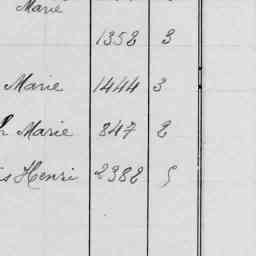 Marie
1352 3
Marie 1444 3
Marie 847 2
Henri 2382 5